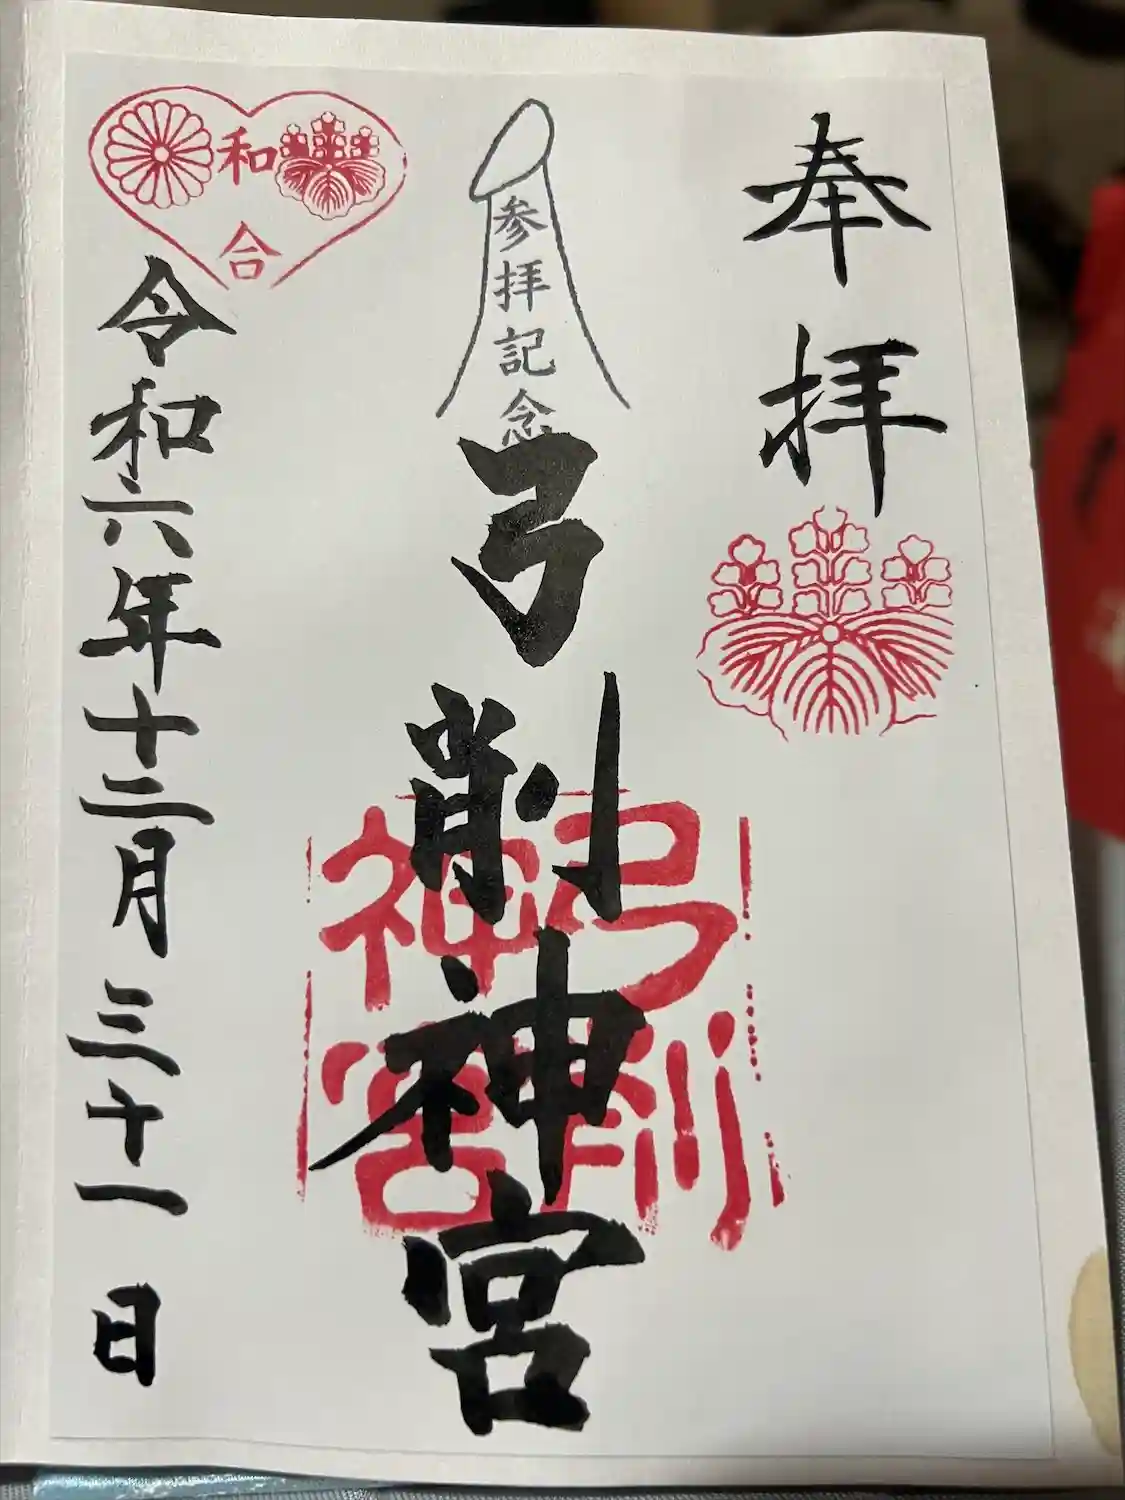 奉拝
参拝記念
弓削神宮
弓削
神宮
和
合
令和六年十二月三十一日